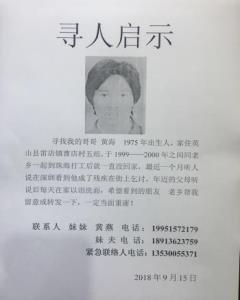 寻人启示
寻找我的哥哥 黄海 1975年出生人，家住英
山县雷店镇曹店村五组，于1999——2000年之间同老
乡一起到珠海打工后就一直没回家，最近一个月听人
说在深圳看到他成了残疾在街上乞讨，年近的父母听
说后每天在家以泪洗面，希望看到的朋友 老乡帮我
留意或转发一下，一定当面重谢！
联系人 妹妹 黄燕 电话：19951572179
妹夫电话：18913623759
紧急联络人电话：13530055371
2018年9月15日